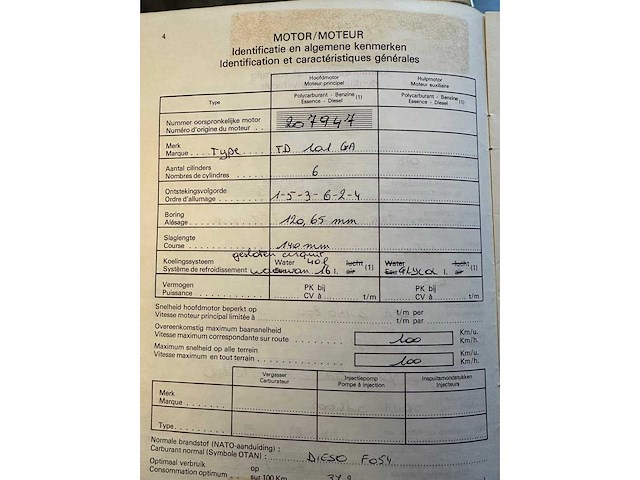 4
MOTOR/MOTEUR
Identificatie en algemene kenmerken
Identification et caractéristiques générales
Type
Hoofdmotor
Moteur principal
Hulpmotor
Moteur auxiliaire
Polycarburant - Benzine (1)
Essence - Diesel
Polycarburant - Benzine (1)
Essence - Diesel
Nummer oorspronkelijke motor
Numéro d'origine du moteur . . 207947
Merk
Marque . Type TD 101 GA
Aantal cilinders
Nombres de cylindres . . . 6
Ontstekingsvolgorde
Ordre d'allumage . . . 1-5-3-6-2-4
Boring
Alésage . . . 120,65 mm
Slaglengte
Course . . . 140 mm
gesloten circuit
Koelingsysteem Water 40 l lucht Water lucht
Système de refroidissement waarvan 16 l. air (1) Eau GLYCOL l. air (1)
Vermogen PK bij PK bij
Puissance . . . CV à . . . t/m CV à . . . t/m
Snelheid hoofdmotor beperkt op t/m per
Vitesse moteur principal limitée à t/m par
Overeenkomstig maximum baansnelheid Km/u.
Vitesse maximum correspondante sur route . . . 100 Km/h.
Maximum snelheid op alle terrein Km/u.
Vitesse maximum en tout terrain . . . 100 Km/h.
Vergasser
Carburateur
Injectiepomp
Pompe à injection
Inspuitsmondstukken
Injecteurs
Merk
Marque . . .
Type . . .
Normale brandstof (NATO-aanduiding) :
Carburant normal (Symbole OTAN) : . . . DIESO F054
Optimaal verbruik op
Consommation optimum . . . sur 100 Km